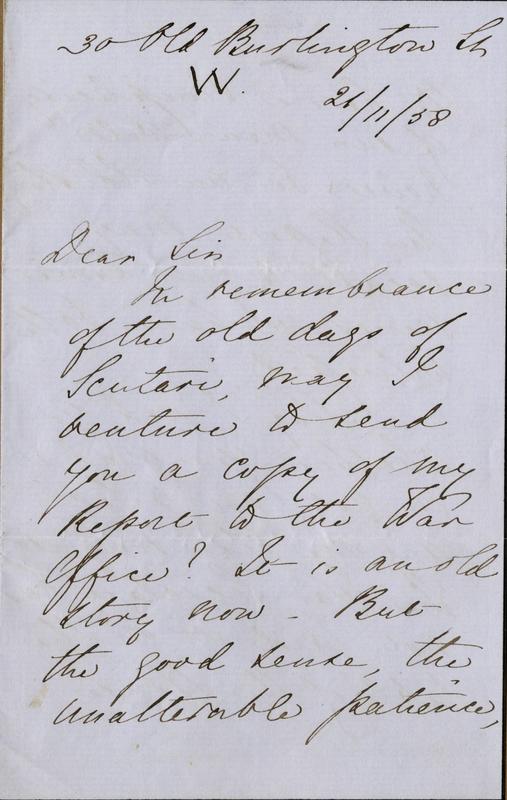 30 Old Burlington St
W.
26/11/58
Dear Sir
In remembrance
of the old days of
Scutari, may I
venture to send
you a copy of my
Report to the War
Office? It is an old
story now - But
the good sense, the
unalterable patience,